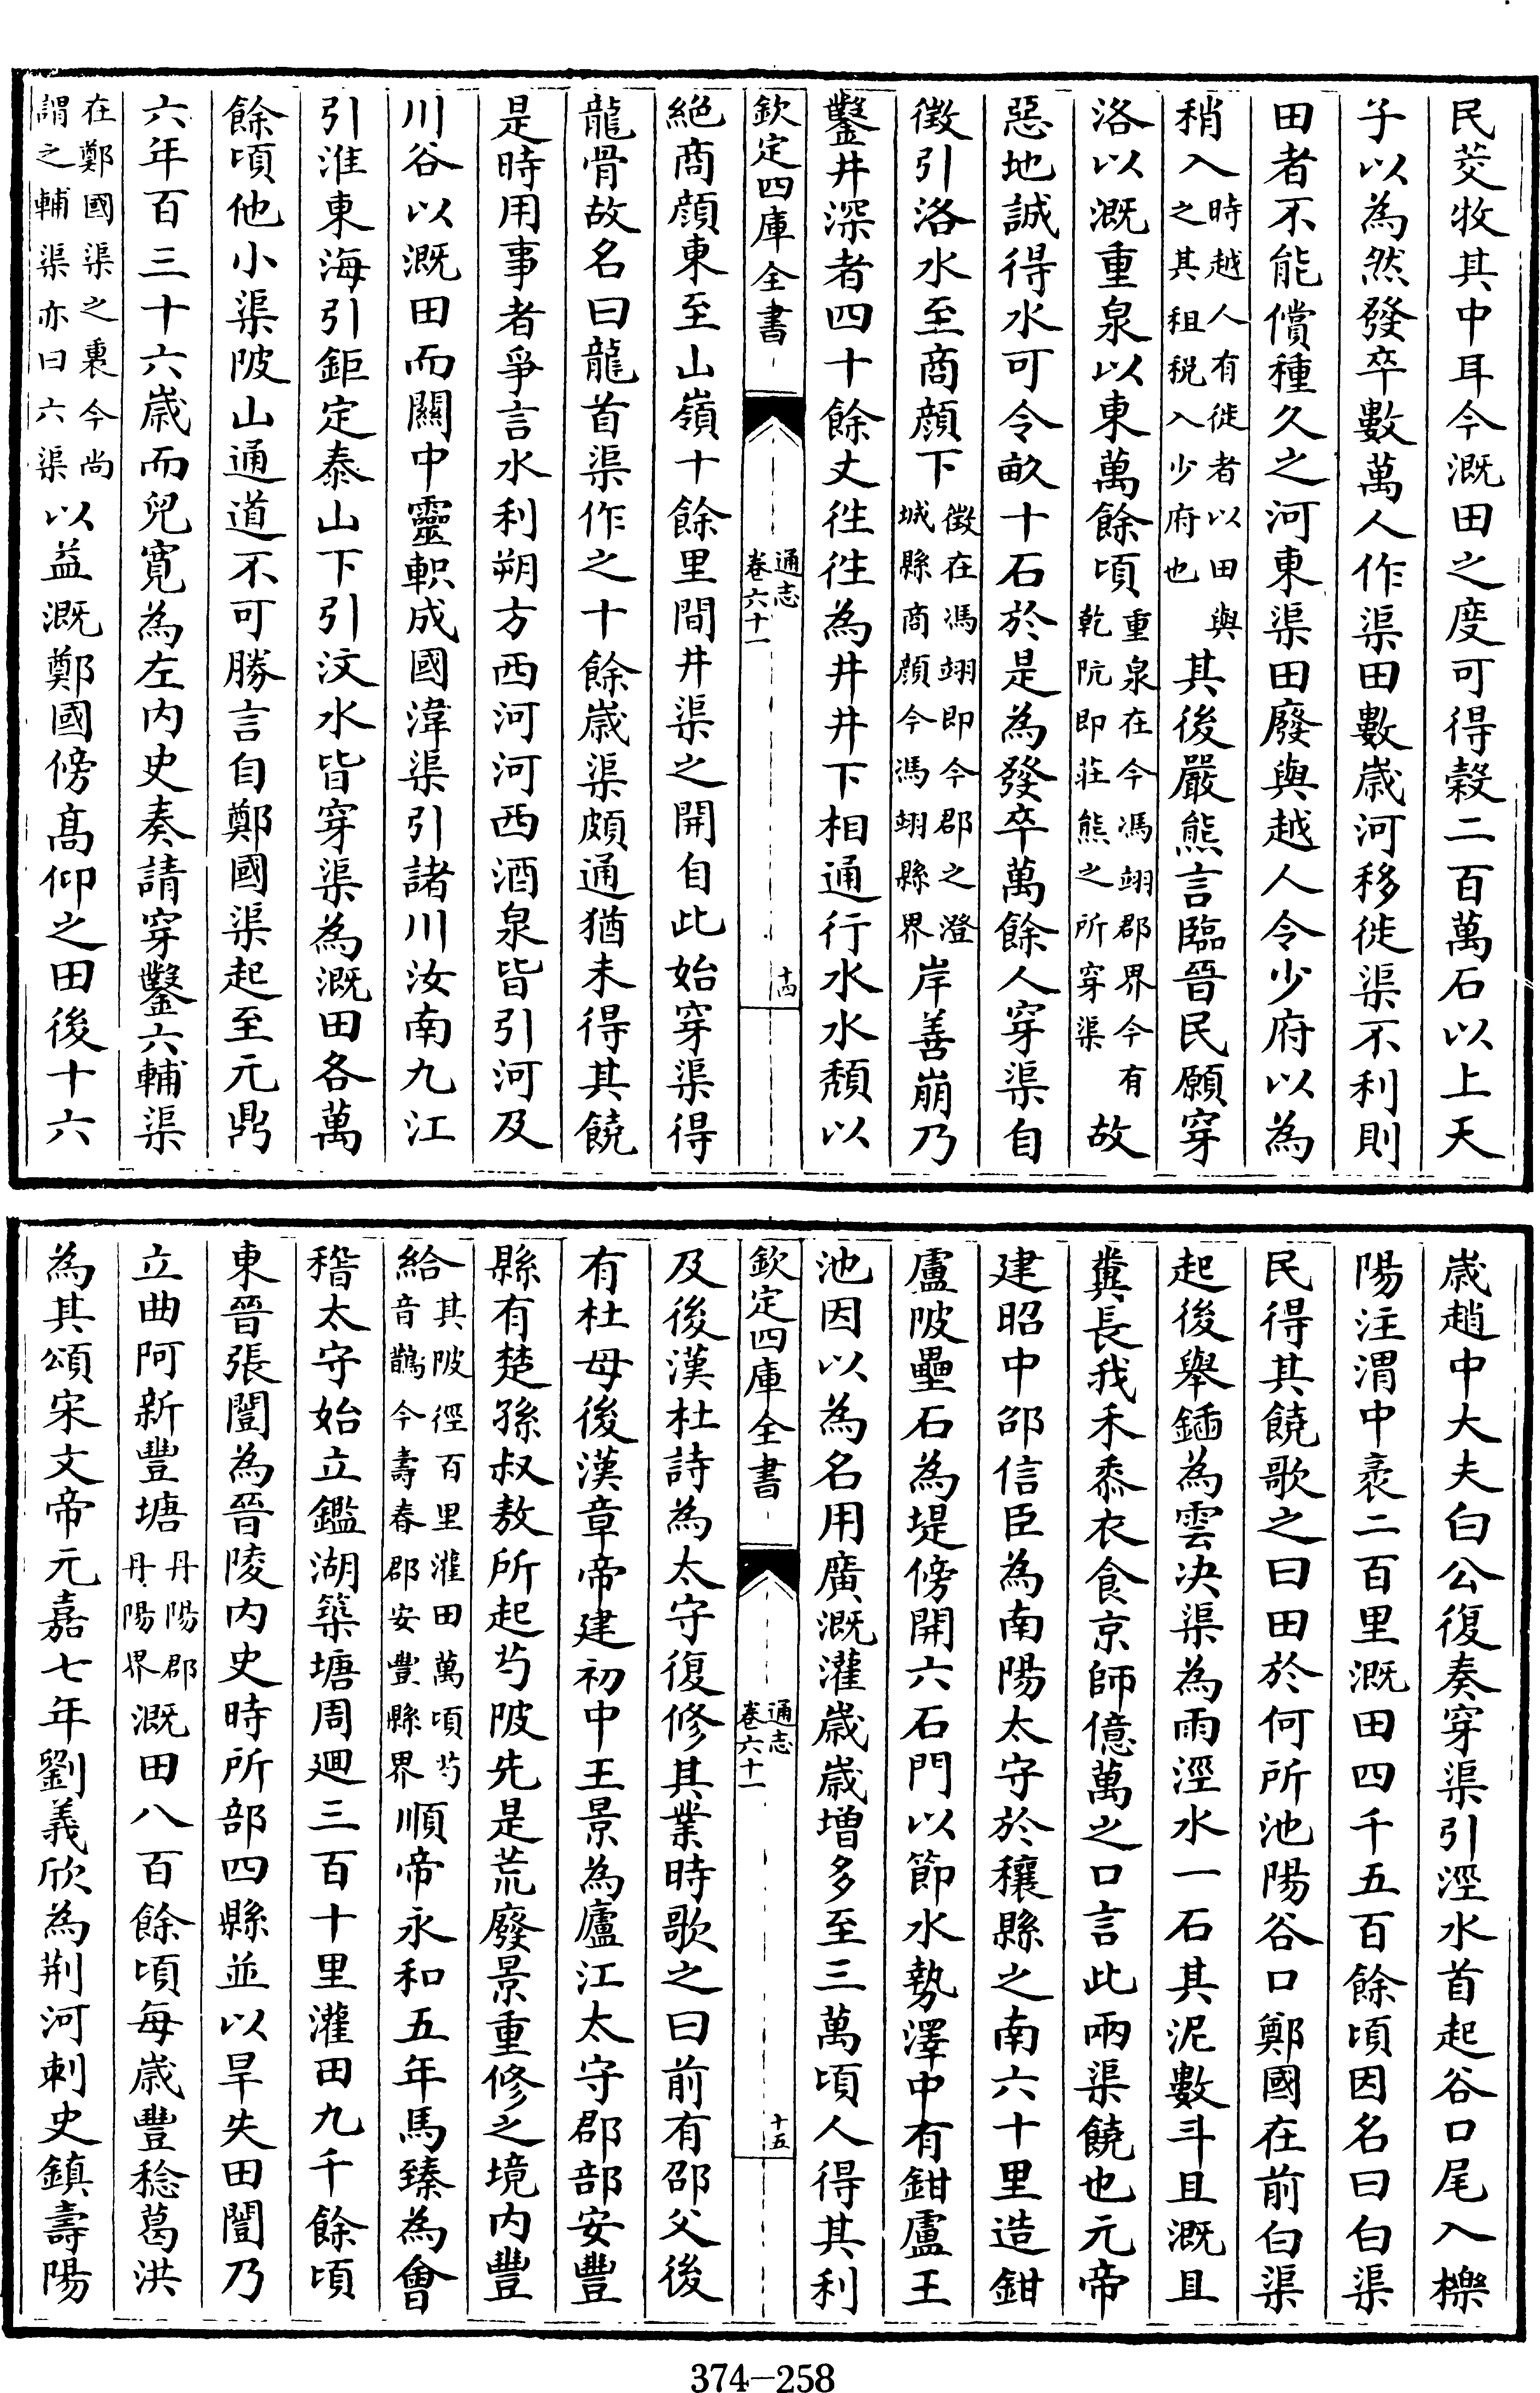 民茭牧其中耳今溉田之度可得穀二百萬石以上天
子以為然發卒數萬人作渠田數嵗河移徙渠不利則
田者不能償種久之河東渠田廢與越人令少府以為
稍入時越人有徙者以田與之其租税入少府也其後嚴熊言臨晉民願穿
洛以溉重泉以東萬餘頃重泉在今馮翊郡界今有乾阬即莊熊之所穿渠故
惡地誠得水可令畝十石於是為發卒萬餘人穿渠自
徵引洛水至商顔下徵在馮翊即今郡之澄城縣商顔今馮翊縣界岸善崩乃
鑿井深者四十餘丈徃徃為井井下相通行水水頹以
欽定四庫全書
通志
卷六十一
十四
絶商顔東至山嶺十餘里間井渠之開自此始穿渠得
龍骨故名曰龍首渠作之十餘嵗渠頗通猶未得其饒
是時用事者爭言水利朔方西河河西酒泉皆引河及
川谷以溉田而關中靈軹成國湋渠引諸川汝南九江
引淮東海引鉅定泰山下引汶水皆穿渠為溉田各萬
餘頃他小渠陂山通道不可勝言自鄭國渠起至元鼎
六年百三十六嵗而兒寛為左内史奏請穿鑿六輔渠
在鄭國渠之裏今尚謂之輔渠亦曰六渠以益溉鄭國傍髙仰之田後十六
嵗趙中大夫白公復奏穿渠引涇水首起谷口尾入櫟
陽注渭中袤二百里溉田四千五百餘頃因名曰白渠
民得其饒歌之曰田於何所池陽谷口鄭國在前白渠
起後舉鍤為雲决渠為雨涇水一石其泥數斗且溉且
糞長我禾黍衣食京師億萬之口言此兩渠饒也元帝
建昭中邵信臣為南陽太守於穰縣之南六十里造鉗
盧陂壘石為堤傍開六石門以節水勢澤中有鉗盧王
池因以為名用廣溉灌嵗嵗増多至三萬頃人得其利
欽定四庫全書
通志
卷六十一
十五
及後漢杜詩為太守復修其業時歌之曰前有邵父後
有杜母後漢章帝建初中王景為廬江太守郡部安豐
縣有楚孫叔敖所起芍陂先是荒廢景重修之境内豐
給其陂徑百里灌田萬頃芍音鵲今壽春郡安豐縣界順帝永和五年馬臻為會
稽太守始立鑑湖築塘周廻三百十里灌田九千餘頃
東晉張闓為晉陵内史時所部四縣並以旱失田闓乃
立曲阿新豐塘丹陽郡丹陽界溉田八百餘頃每嵗豐稔葛洪
為其頌宋文帝元嘉七年劉義欣為荆河刺史鎮壽陽
374-258